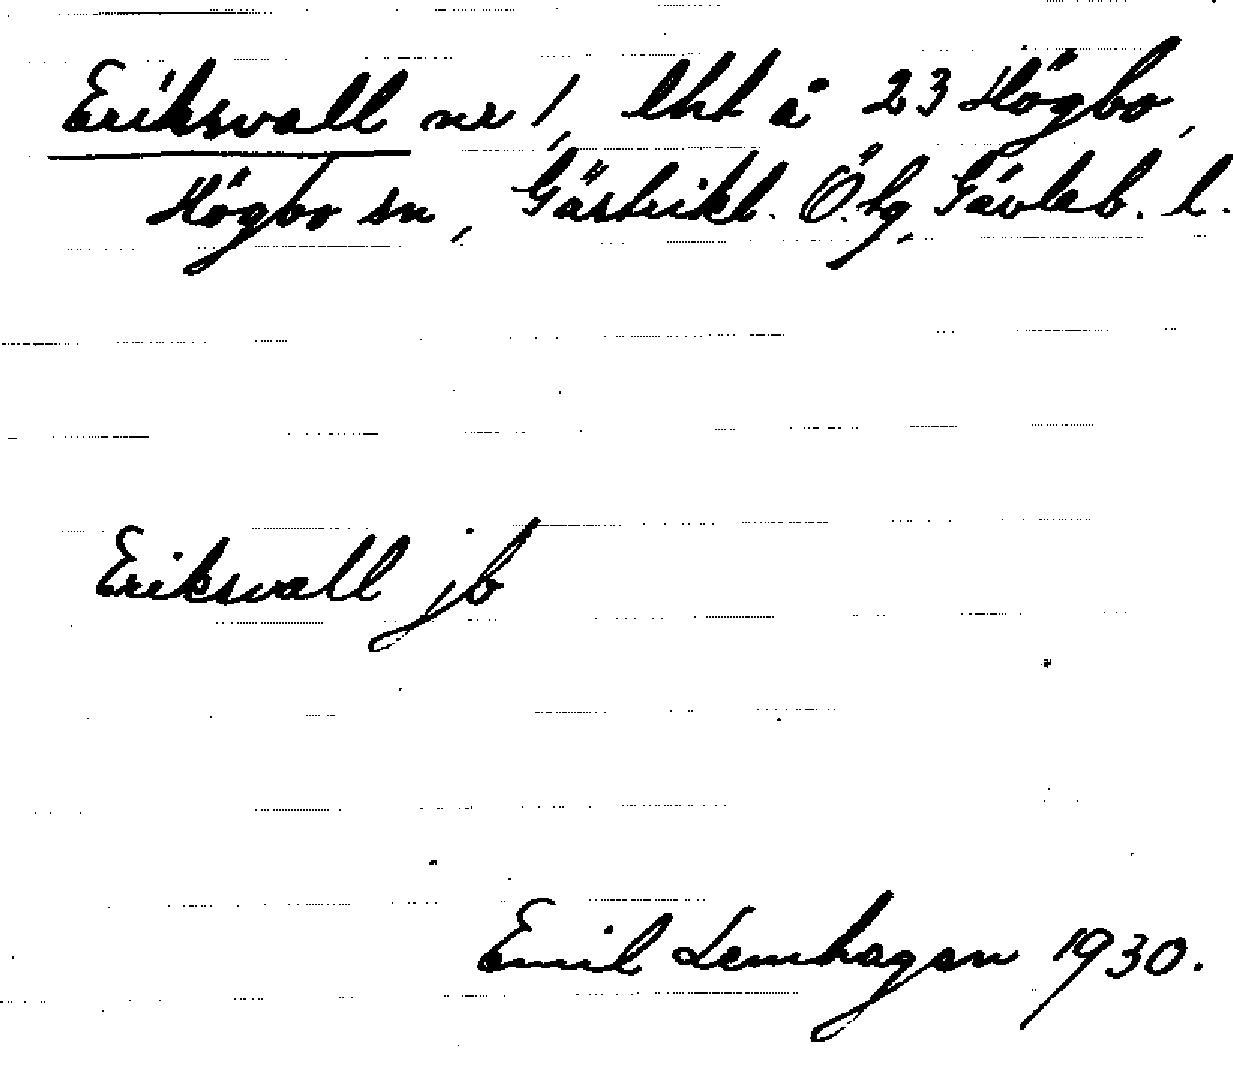 Eriksvall nr 1, lht å 23 Högbo,
Högbo sn, Gästrikl. Ö.tg, Gävleb. l.
Eriksvall jb
Emil Lemhagen 1930.